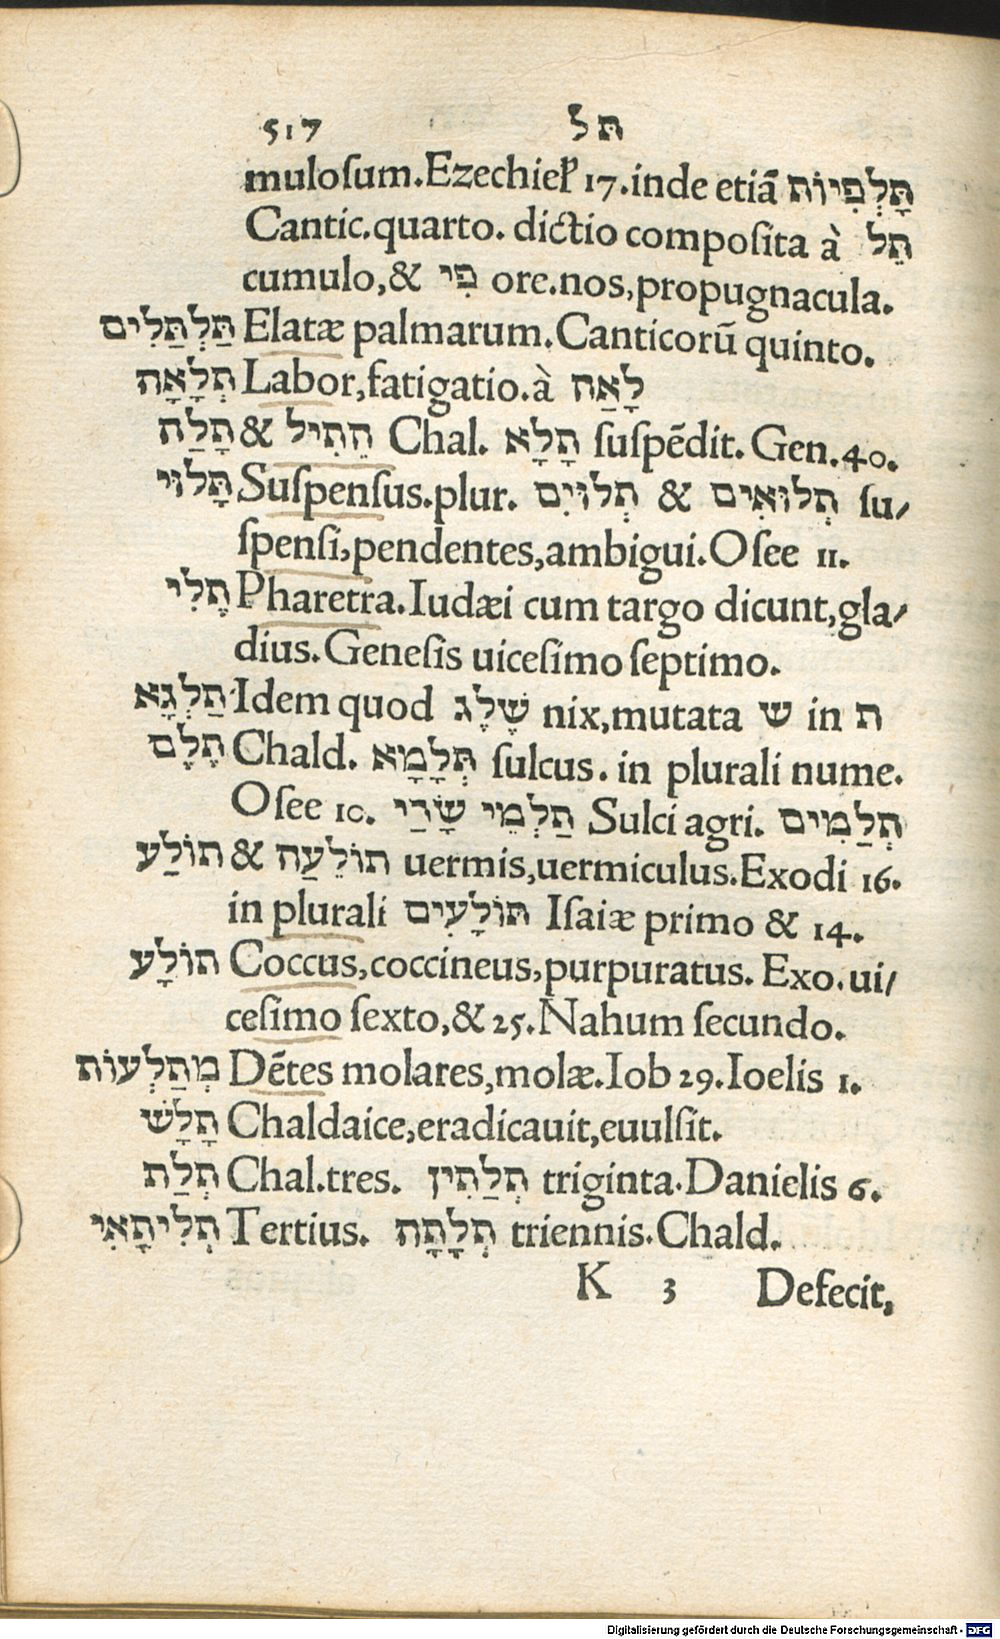 517 תל
mulosum.Ezechiel̛ 17.inde etiã תָּלְפִּיוֹת
Cantic.quarto. dictio composita à תֵּל
cumulo,& פִּי ore.nos,propugnacula.
תַּלְתַּלִּים Elatæ palmarum.Canticorũ quinto.
תְּלָאָה Labor,fatigatio.à לָאַה
תָּלַה & הֵתִיל Chal. תָּלָא suspẽdit. Gen.40.
תָּלוּי Suspensus.plur. תְּלוּיִם & תְּלוּאִים su/
spensi,pendentes,ambigui.Osee 11.
תֶּלִי Pharetra.Iudæi cum targo dicunt,gla/
dius.Genesis uicesimo septimo.
תַּלְגָּא Idem quod שֶׁלֶג nix,mutata ש in ת
תֶּלֶם Chald. תְּלָמָא sulcus. in plurali nume.
Osee 10. תַּלְמֵי שָׂדַי Sulci agri. תְּלַמִים
תוֹלַע & תוֹלֵעַה uermis,uermiculus.Exodi 16.
in plurali תּוֹלָעִים Isaiæ primo & 14.
תוֹלָע Coccus,coccineus,purpuratus. Exo.ui/
cesimo sexto,& 25.Nahum secundo.
מְתַלְּעוֹת Dẽtes molares,molæ.Iob 29.Ioelis 1.
תָּלָשׁ Chaldaice,eradicauit,euulsit.
תְּלַת Chal.tres. תְּלַתִין triginta.Danielis 6.
תְּלִיתָאִי Tertius. תְּלָתָה triennis.Chald.
K 3 Defecit,
Digitalisierung gefördert durch die Deutsche Forschungsgemeinschaft - DFG